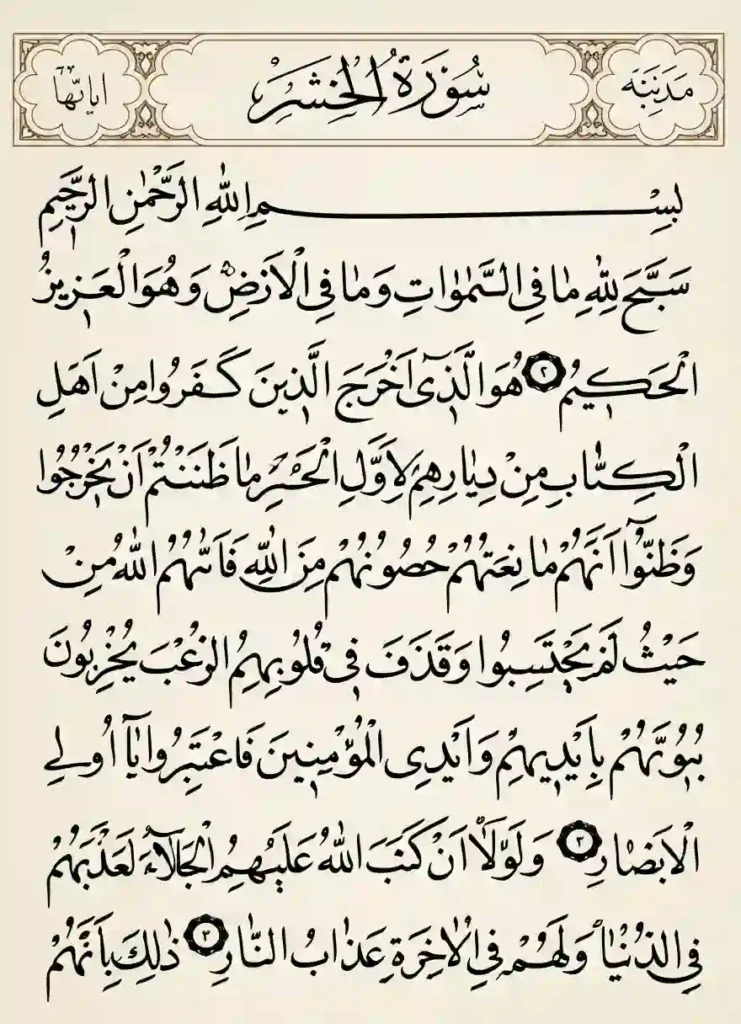 مَدَنِيَّة
سُورَةُ الْحَشْرِ
اياتها
بِسْمِ اللّٰهِ الرَّحْمٰنِ الرَّحِيمِ
سَبَّحَ لِلّٰهِ مَا فِي السَّمٰوَاتِ وَمَا فِي الْاَرْضِ وَهُوَ الْعَزِيزُ
الْحَكِيمُ ٢ هُوَ الَّذِٓي اَخْرَجَ الَّذِينَ كَفَرُوا مِنْ اَهْلِ
الْكِتَابِ مِنْ دِيَارِهِمْ لِاَوَّلِ الْحَشْرِ مَا ظَنَنْتُمْ اَنْ يَخْرُجُوا
وَظَنُّٓوا اَنَّهُمْ مَانِعَتُهُمْ حُصُونُهُمْ مِنَ اللّٰهِ فَاَتٰيهُمُ اللّٰهُ مِنْ
حَيْثُ لَمْ يَحْتَسِبُوا وَقَذَفَ فِي قُلُوبِهِمُ الرُّعْبَ يُخْرِبُونَ
بُيُوتَهُمْ بِاَيْدِيهِمْ وَاَيْدِي الْمُؤْمِنِينَ فَاعْتَبِرُوا يَٓا اُولِي
الْاَبْصَارِ ٣ وَلَوْلَٓا اَنْ كَتَبَ اللّٰهُ عَلَيْهِمُ الْجَلَٓاءَ لَعَذَّبَهُمْ
فِي الدُّنْيَا وَلَهُمْ فِي الْاٰخِرَةِ عَذَابُ النَّارِ ٣ ذٰلِكَ بِاَنَّهُمْ